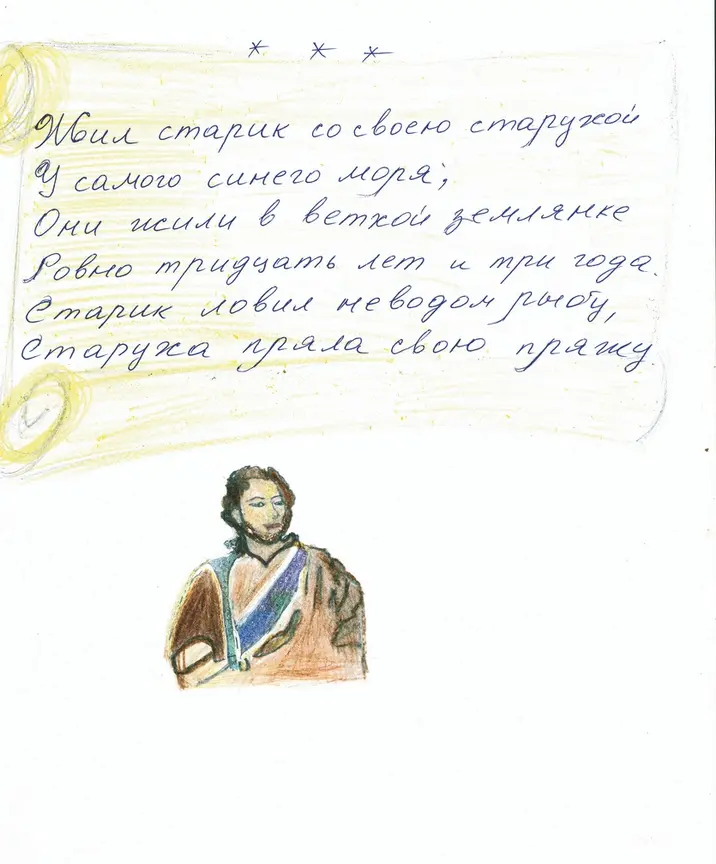 * * *
Жил старик со своею старухой
У самого синего моря;
Они жили в ветхой землянке
Ровно тридцать лет и три года.
Старик ловил неводом рыбу,
Старуха пряла свою пряжу.